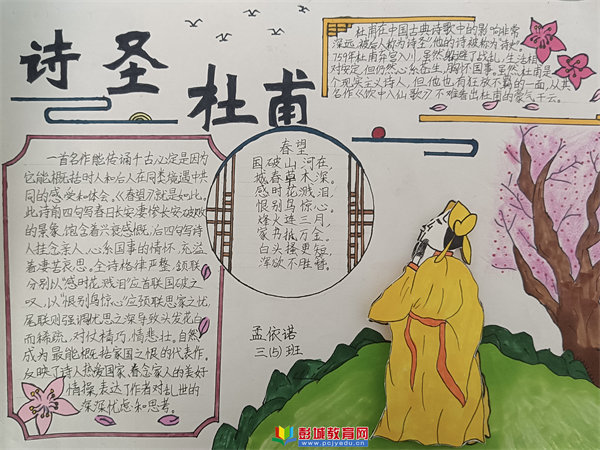 诗圣杜甫
杜甫在中国古典诗歌中的影响非常
深远,被后人称为诗圣,他的诗被称为"诗史"。
759年杜甫弃官入川,虽然躲避了战乱,生活相
对安定,但仍然心系苍生,胸怀国事。虽然杜甫是
个现实主义诗人,但他也有狂放不羁的一面,从其
名作《饮中八仙歌》不难看出杜甫的豪气干云。
一首名作能传诵千古必定是因为
它能概括时人和后人在同类境遇中共
同的感受和体会。《春望》就是如此。
此诗前四句写春日长安凄惨长安破败
的景象,饱含着兴衰感慨,后四句写诗
人挂念亲人、心系国事的情怀,充溢
着凄苦哀思。全诗格律严整,颔联
分别以"感时花溅泪"应首联国破之
叹,以"恨别鸟惊心"应颈联思家之忧,
尾联则强调忧思之深导致头发花白
而稀疏,对仗精巧,情悲壮。自然
成为最能概括家国之恨的代表作,
反映了诗人热爱国家,眷念家人的美好
情操,表达了作者对乱世的
深深忧虑和思考。
春望
国破山河在,
城春草木深。
感时花溅泪,
恨别鸟惊心。
烽火连三月,
家书抵万金。
白头搔更短,
浑欲不胜簪。
孟依诺
三(5)班
彭城教育网
www.pcjyedu.cn